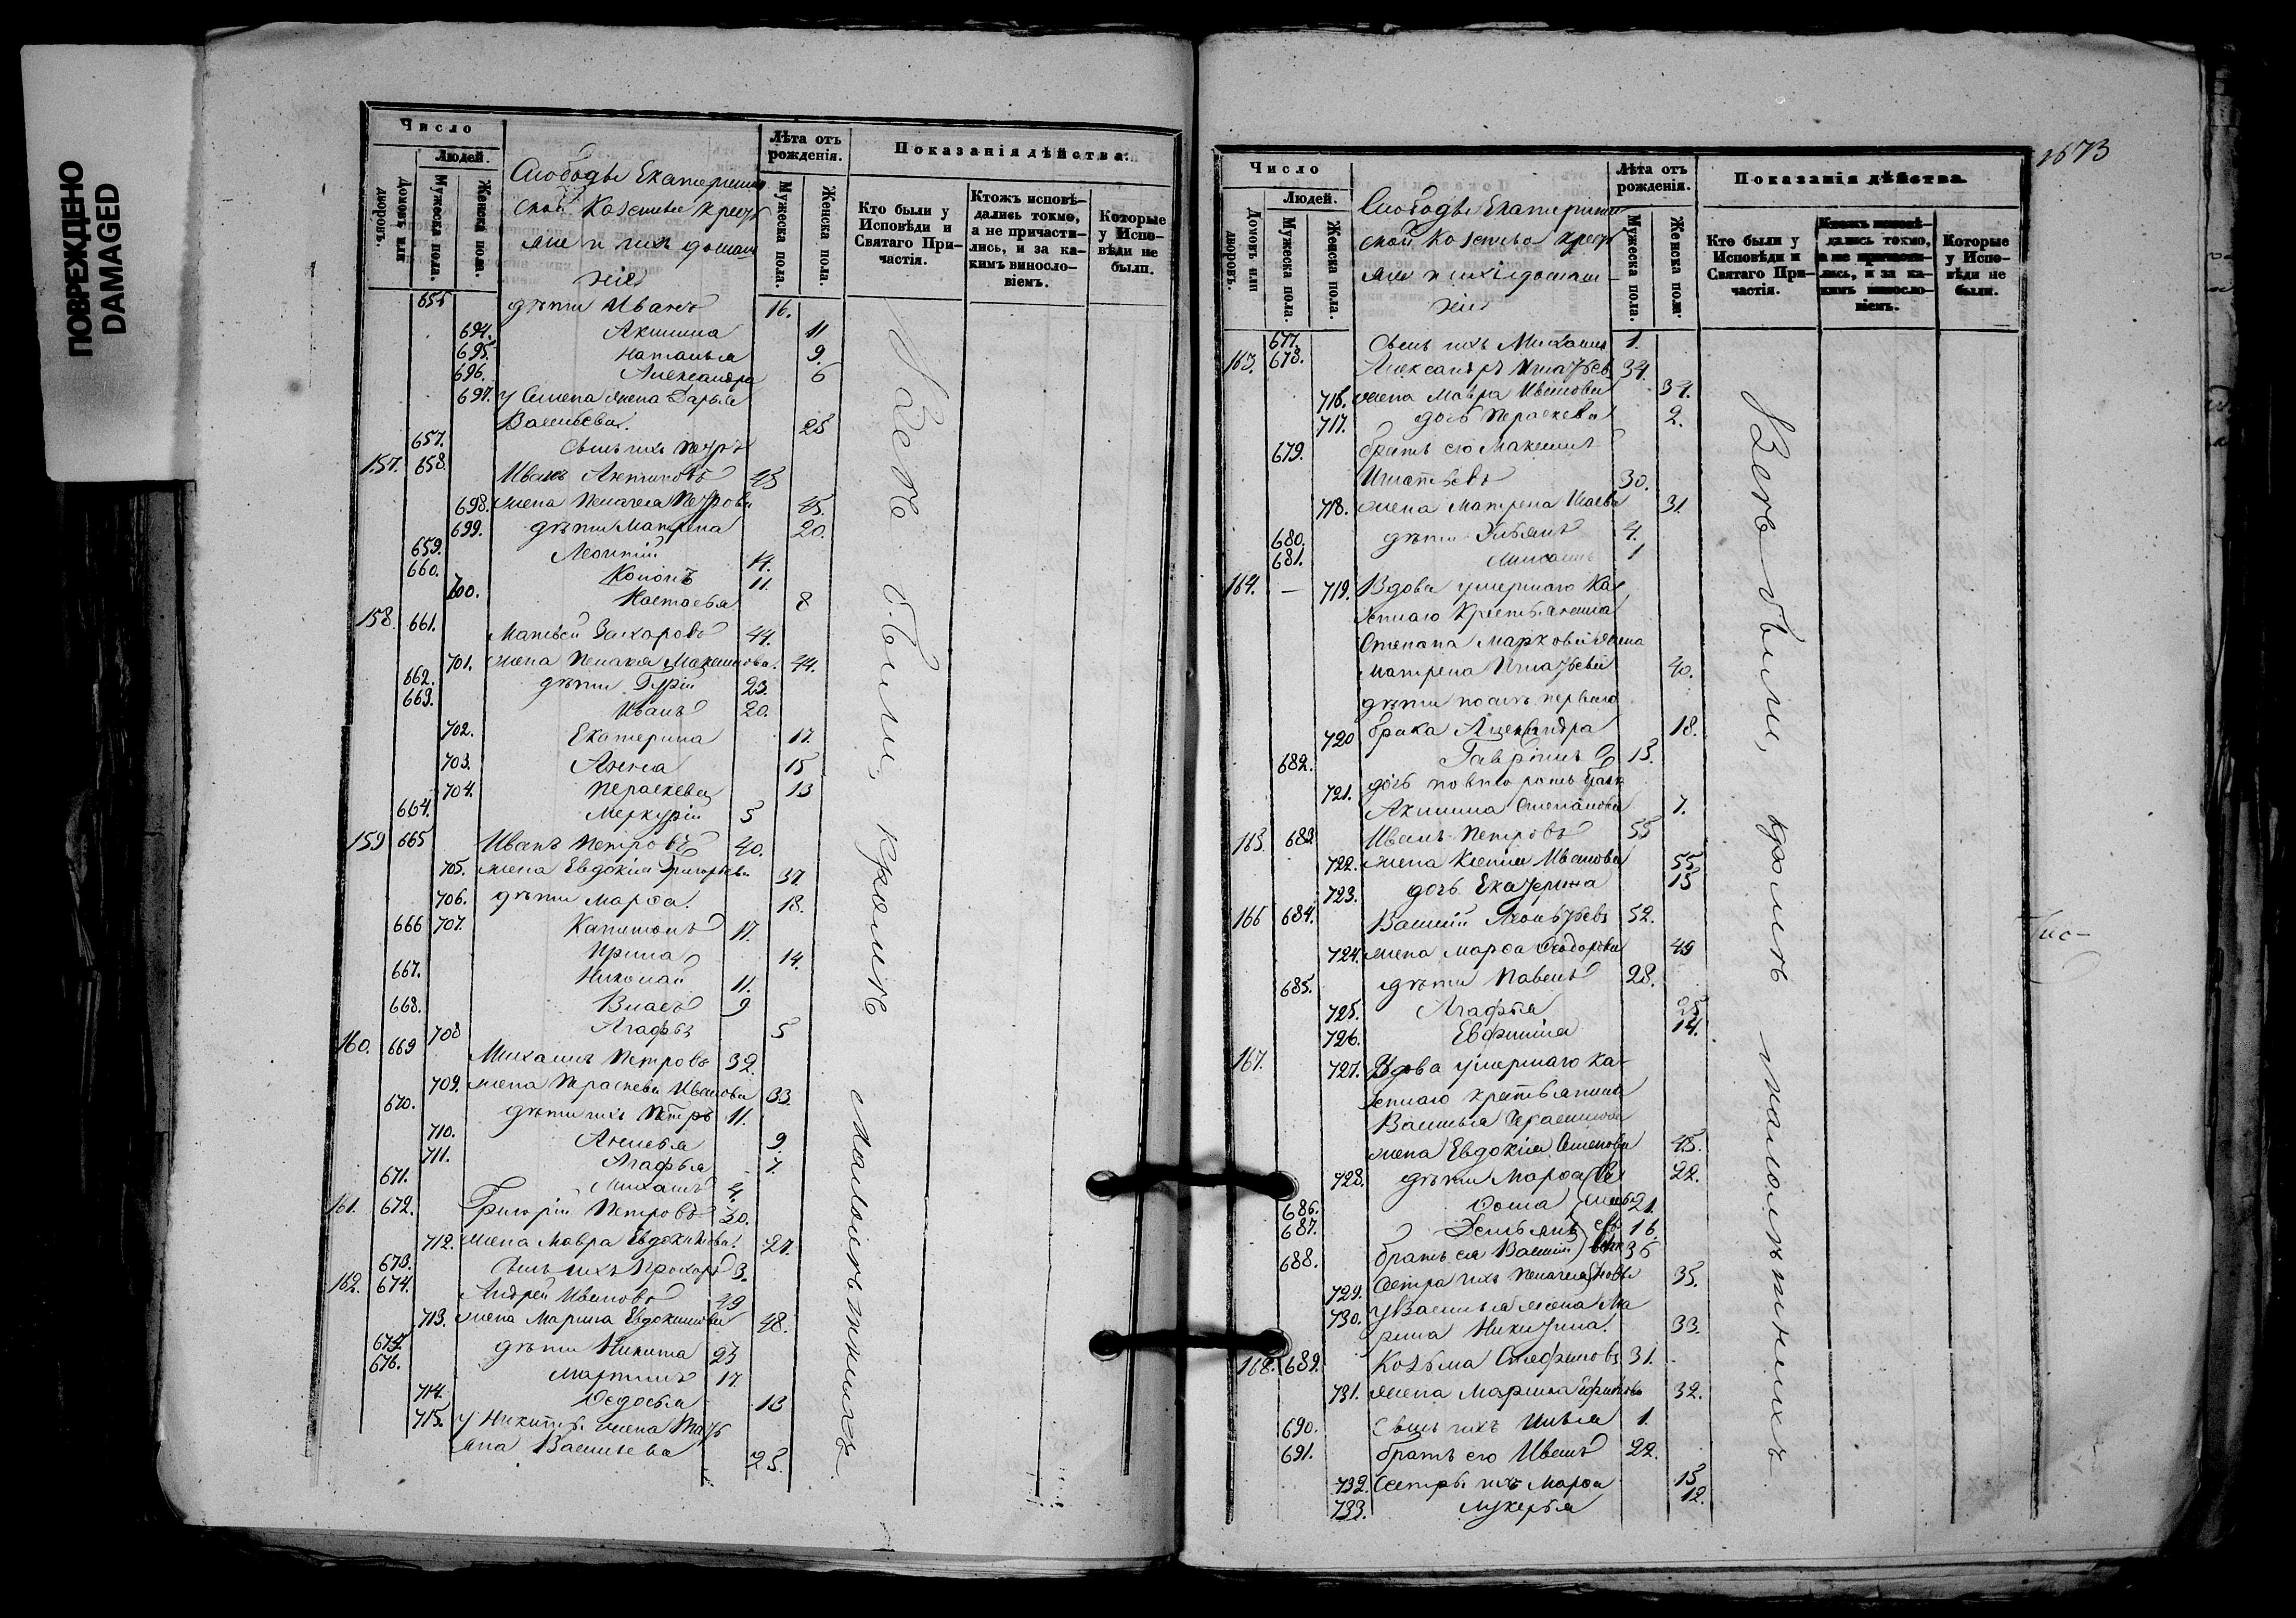 ПОВРЕЖДЕНО
DAMAGED
Число
Людей.
Домовъ или дворовъ.
Мужеска пола.
Женска пола.
Слободы Екатеринин
ской Казенные крест
яне и ихъ домаш
ніе
Лѣта отъ рожденія.
Мужеска пола.
Женска пола.
Показанія дѣйства.
Кто были у Исповѣди и Святаго Причастія.
Ктожъ исповѣ-
дались токмо,
а не причасти-
лись, и за ка-
кимъ винословіемъ.
Которые у Испо-
вѣди не были.
655 дѣти Иванъ 16.
694. Акилина 11
695. Наталья 9.
696. Александра 6
697. у Семена жена Дарья
Васильева. 25
657. сынъ ихъ Петръ
157. 658. Иванъ Антиповъ 45
698. жена Пелагея Петрова 45.
699. дѣти Матрена 20.
659. Леонтій 14.
660. Кононъ 11.
700. Настасья 8
158. 661. Матвей Захаровъ 44.
701. жена Пелагея Максимова. 44.
662. дѣти Гурій 23.
663. Иванъ 20.
702. Екатерина 17.
703. Анна 15
704. Пераскева 13
664. Меркурій 5
159 665 Иванъ Петровъ 40.
705. жена Евдокія Григорьева 37.
706. дѣти Марѳа. 18.
666 707. Капитонъ 17.
Ирина 14.
667. Николай 11.
668. Власъ 9
708 Агафья 5
160. 669 Михаилъ Петровъ 32.
709. жена Праскева Иванова 33.
670. дѣти ихъ Петръ 11.
710. Анисья 9.
711. Агафья 7.
671. Михаилъ 4.
161. 672. Григорій Петровъ 30.
712. жена Мавра Евдокимова. 27.
673. сынъ ихъ Прохоръ 3.
162. 674. Андрей Ивановъ 49
713. жена Марина Евдокимова 48.
675. дѣти Никита 23
676. Мартинъ 17.
714. Ѳедосья 13
715. у Никиты жена Тать
яна Васильева 23.
Всѣ были, кромѣ малолѣтнихъ.
1673
Число
Людей.
Домовъ или дворовъ.
Мужеска пола.
Женска пола.
Слободы Екатеринин
ской Казенные крест
яне и ихъ домаш-
ніе
Лѣта отъ рожденія.
Мужеска пола.
Женска пола.
Показанія дѣйства.
Кто были у Исповѣди и Святаго Причастія.
Ктожъ исповѣ-
дались токмо,
а не причасти-
лись, и за ка-
кимъ винословіемъ.
Которые у Испо-
вѣди не были.
677. сынъ ихъ Михаилъ 1.
163. 678. Александръ Игнатьевъ 34.
716. жена Мавра Иванова 34.
717. дочь Пераскева 2.
679. братъ его Максимъ
Игнатьевъ 30.
718. жена Матрена Исаева 31.
680. дѣти Ульянъ 4.
681. Михаилъ 1
164. — 719. Вдова умершаго Ка
зеннаго Крестьянина
Степана Маркова жена
Матрена Игнатьева 40.
дѣти по ихъ перваго
720 брака Александра 18.
682. Гавріилъ 13.
721. дочь по втораго брака
Акилина Степанова 7.
165. 683. Иванъ Петровъ 55
722. жена Ксенія Иванова 55
723. дочь Екатерина 15
166 684. Василій Леонтьевъ 52.
724. жена Марѳа Ѳеодорова 49
685. дѣти Павелъ 28.
725. Агафья 25
726. Евфимія 14.
167. 727. Вдова умершаго ка-
зеннаго крестьянина
Василья Герасимова
жена Евдокія Семенова 45.
728. дѣти Марѳа 22.
686. Ѳома 21.
687. Демьянъ 16.
688. братъ ея Василій 36
729. Сестра ихъ Пелагея 35.
730. у Василья жена Ма
рина Никитина. 33.
168. 689. Козьма Стефановъ 31.
731. жена Марина Ефимова 32.
690. Сынъ ихъ Илья 1.
691. братъ его Иванъ 22.
732. Сестры ихъ Марѳа 15
733. Лукерья 12.
Всѣ были, кромѣ малолѣтнихъ